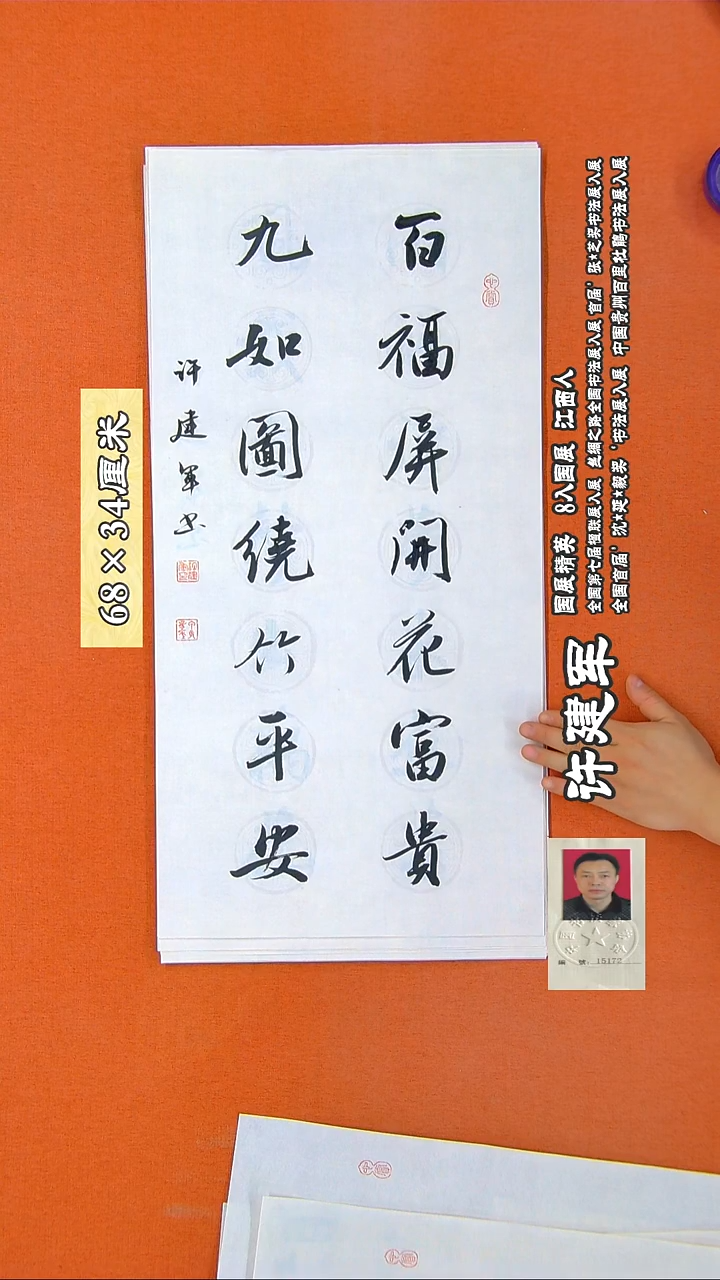 百福屏開花富貴
九如圖繞竹平安
许建军书
68×34厘米
国展精英 8入国展 江西人
全国第七届楹联展入展 丝绸之路全国书法展入展 首届'张*芝奖书法展入展
全国首届'沈*延*毅奖'书法展入展 中国贵州百里杜鹃书法展入展
许建军
编 号：15172